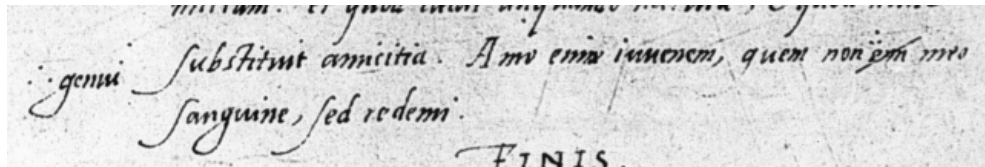 substituit amicitia. Amo enim iuuenem, quem non em meo
genui
sanguine, sed redemi.
FINIS.